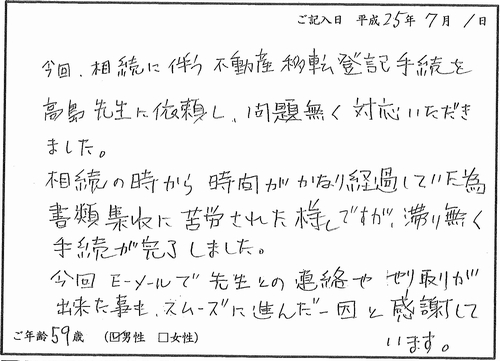 ご記入日 平成25年7月1日
今回、相続に伴う不動産移転登記手続を
高島先生に依頼し、問題無く対応いただき
ました。
相続の時から時間がかなり経過していた為
書類集収に苦労された様ですが、滞り無く
手続が完了しました。
今回E-メールで先生との連絡や やり取りが
出来た事も、スムーズに進んだ一因と感謝して
います。
ご年齢59歳 (☑男性 □女性)